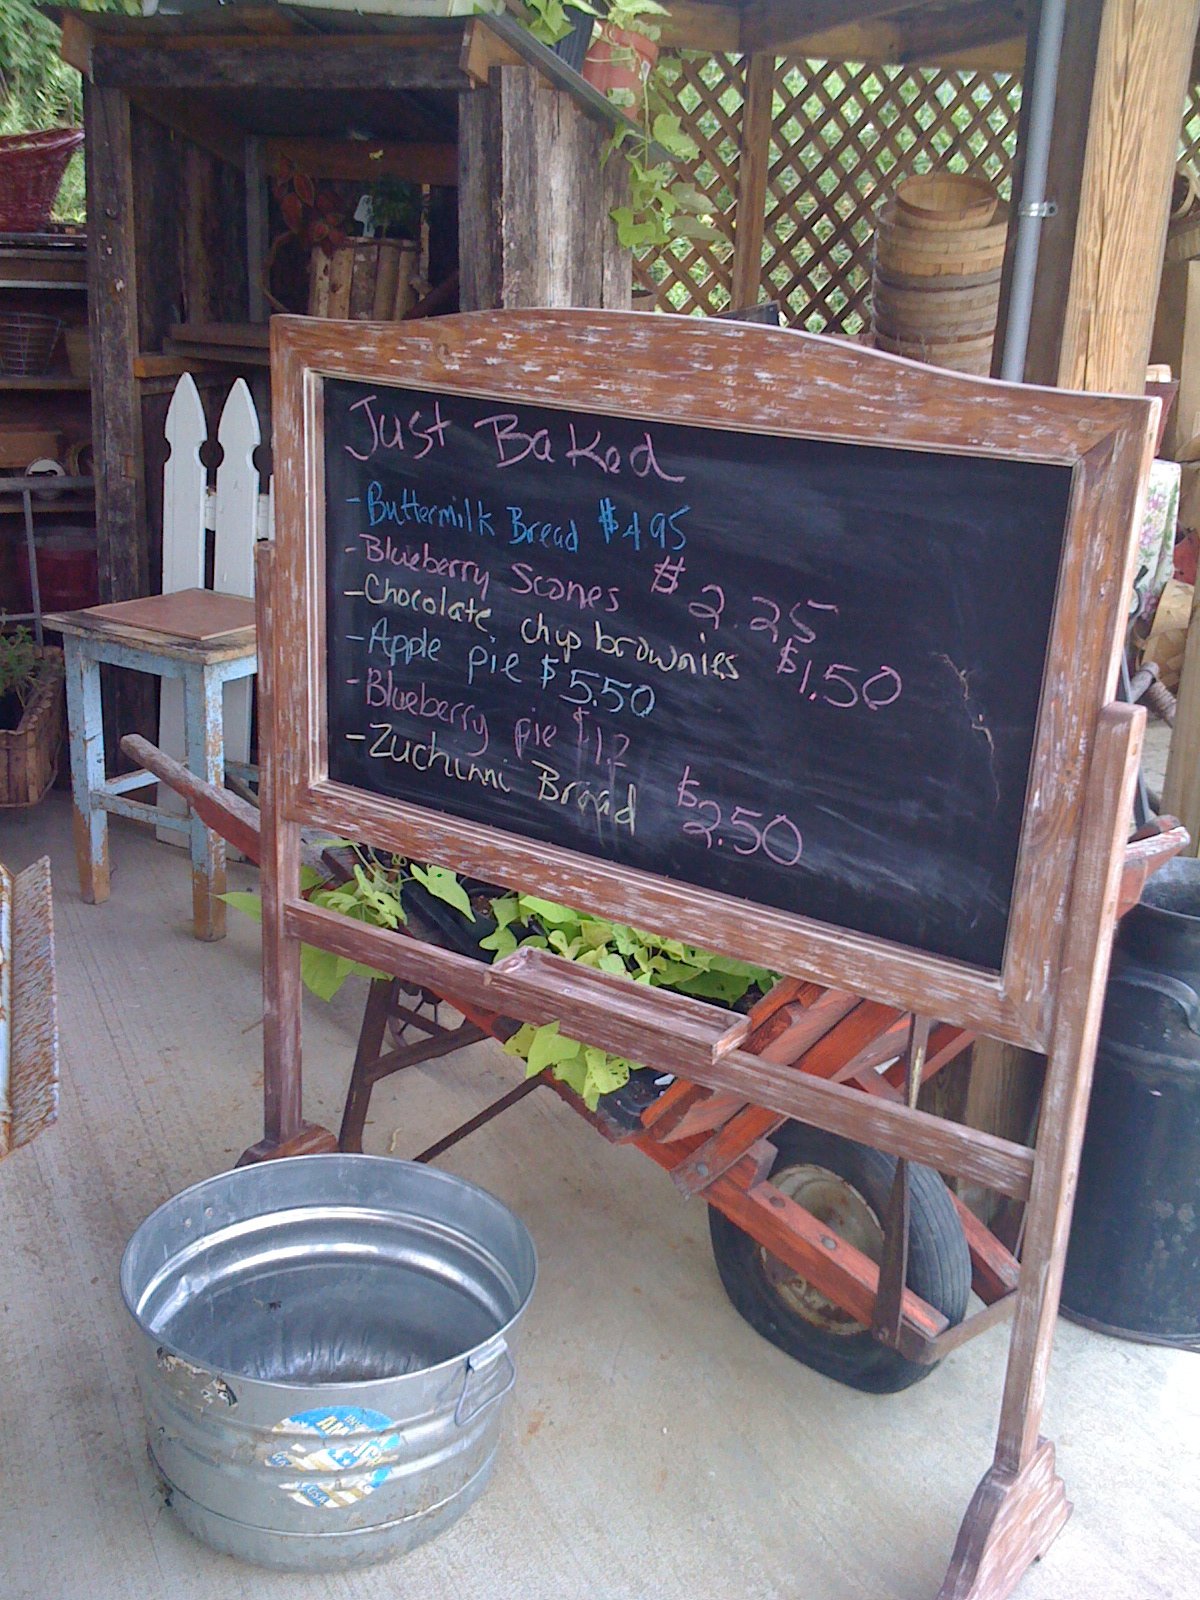 Just Baked
- Buttermilk Bread $4.95
- Blueberry Scones $2.25
- Chocolate chip brownies $1.50
- Apple pie $5.50
- Blueberry pie $12
- Zuchinni Bread $2.50
USA